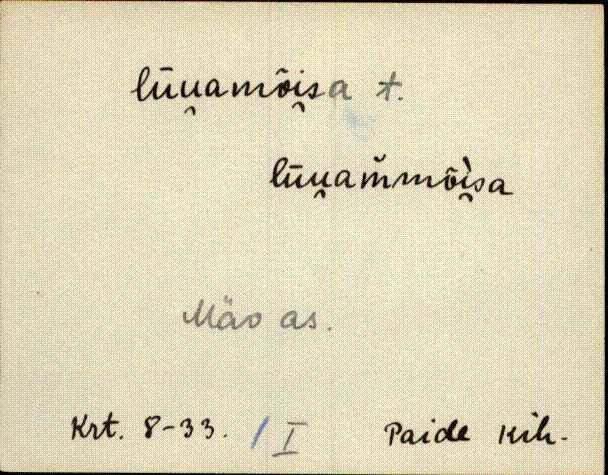 lūu̯amõi̯sa t.
lūu̯am̆mõ̀i̯sa
Mäo as.
Krt. 8-33. / I Paide kih.